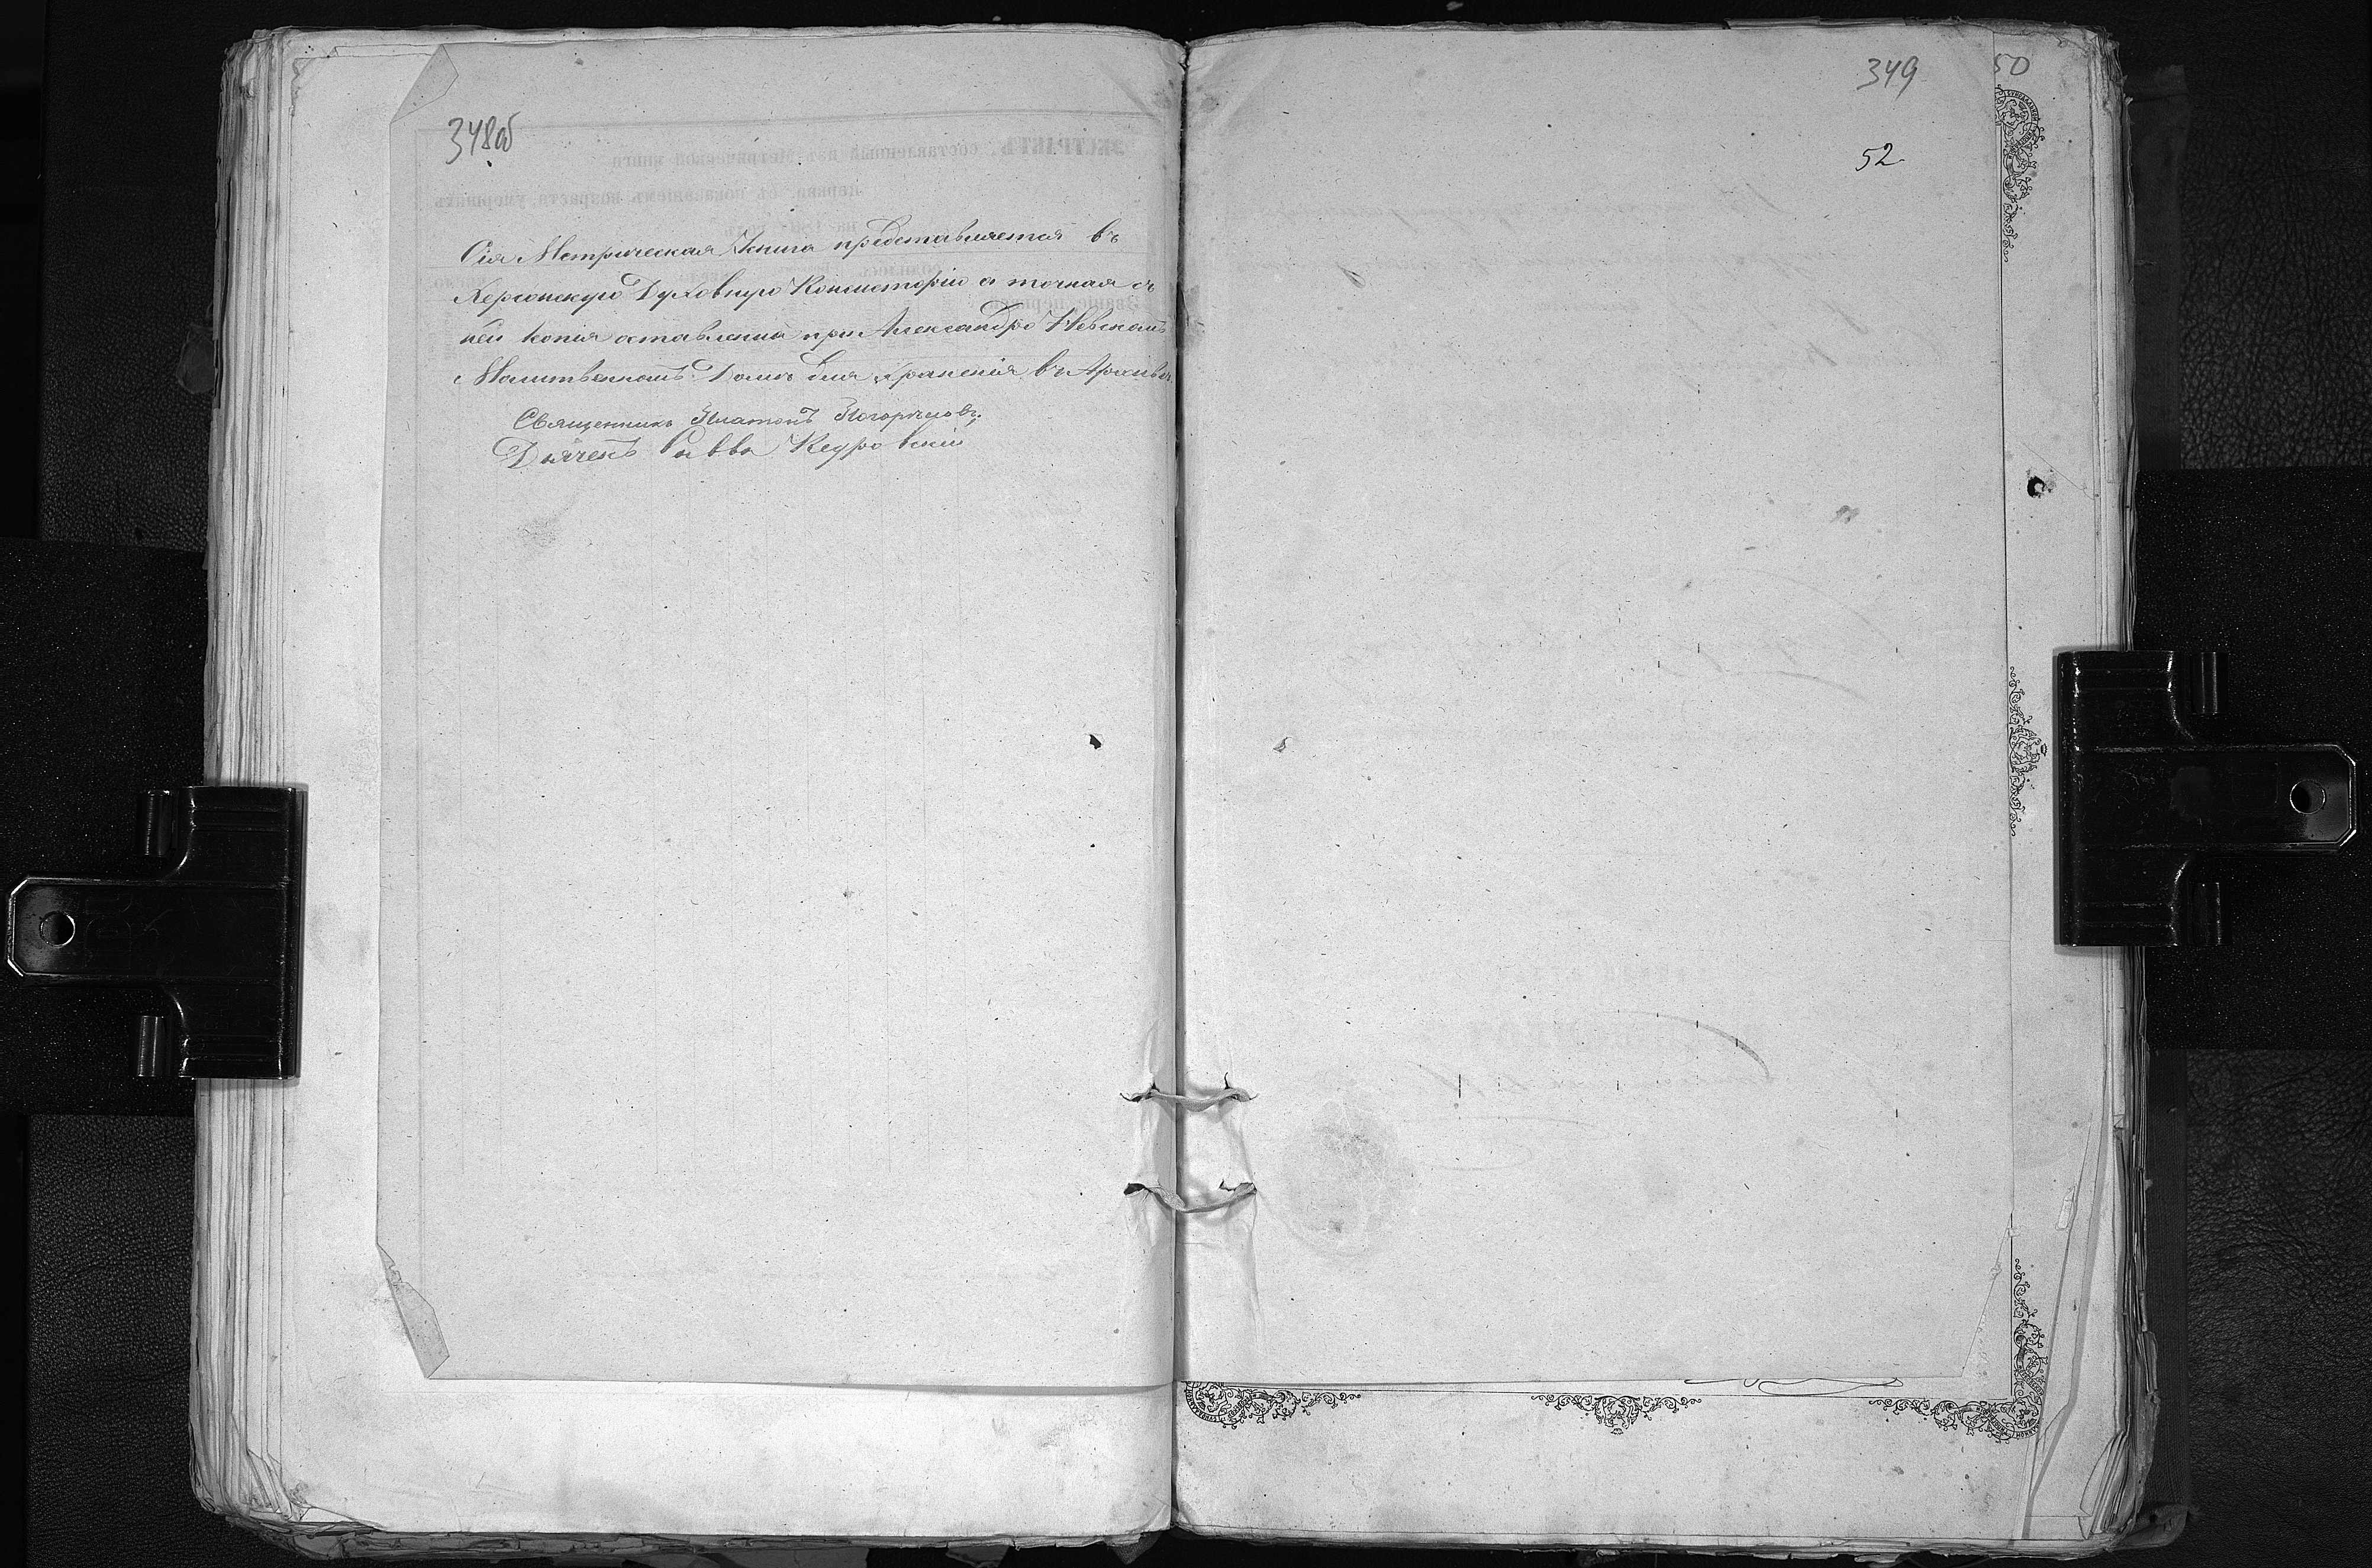 348об
Сія Метрическая Книга представляется въ
Херсонскую Духовную Консисторію а точная съ
ней копія оставлена при Александро Невскомъ
Молитвенномъ Домѣ для храненія въ Архивѣ.
Священникъ Платонъ Погорѣловъ,
Дьячекъ Савва Кедровскій
349
50
52.